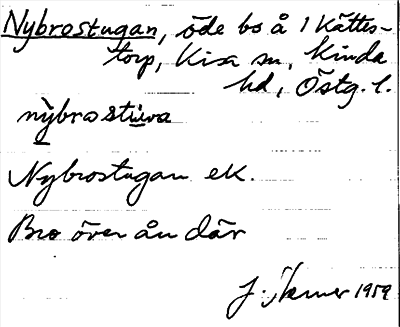 Nybrostugan, öde bo å 1 Kättes-
torp, Kisa sn, Kinda
hd, Östg. l.
nỳbrostùwa
Nybrostugan ek.
Bro över ån där
J. 1959